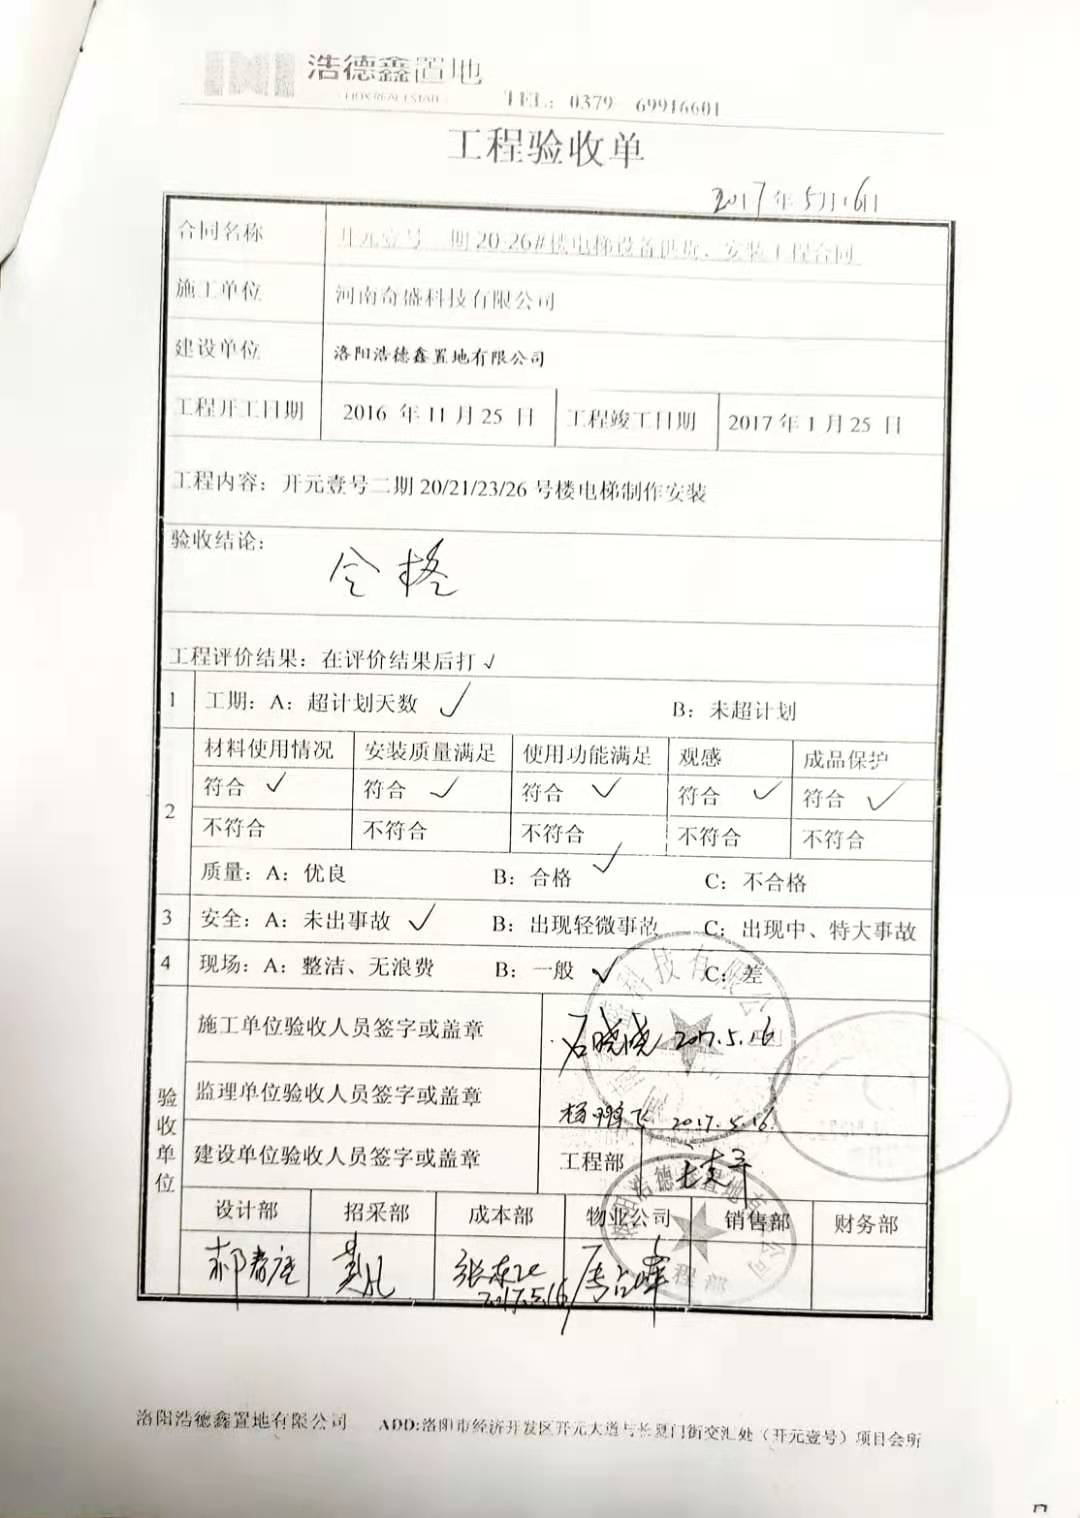 浩德鑫置地
HDX REAL ESTATE
TEL：0379 69916601
工程验收单
2017年5月16日
合同名称 开元壹号二期20-26#楼电梯设备供货、安装工程合同
施工单位 河南奇盛科技有限公司
建设单位 洛阳浩德鑫置地有限公司
工程开工日期 2016 年 11 月 25 日 工程竣工日期 2017 年 1 月 25 日
工程内容：开元壹号二期 20/21/23/26 号楼电梯制作安装
验收结论：
合格
工程评价结果：在评价结果后打√
1 工期：A：超计划天数 √ B：未超计划
材料使用情况 安装质量满足 使用功能满足 观感 成品保护
符合 √ 符合 √ 符合 √ 符合 √ 符合 √
2
不符合 不符合 不符合 不符合 不符合
质量：A：优良 B：合格 √ C：不合格
3 安全：A：未出事故 √ B：出现轻微事故 C：出现中、特大事故
4 现场：A：整洁、无浪费 B：一般 √ C：差
验收单位
施工单位验收人员签字或盖章 石晓晓 2017.5.16
监理单位验收人员签字或盖章 杨鹏飞 2017.5.16
建设单位验收人员签字或盖章 工程部
设计部 招采部 成本部 物业公司 销售部 财务部
2017.5.16
科技有限公
洛阳浩德鑫置地有限公司
工程部
洛阳浩德鑫置地有限公司 ADD:洛阳市经济开发区开元大道与长夏门街交汇处（开元壹号）项目会所